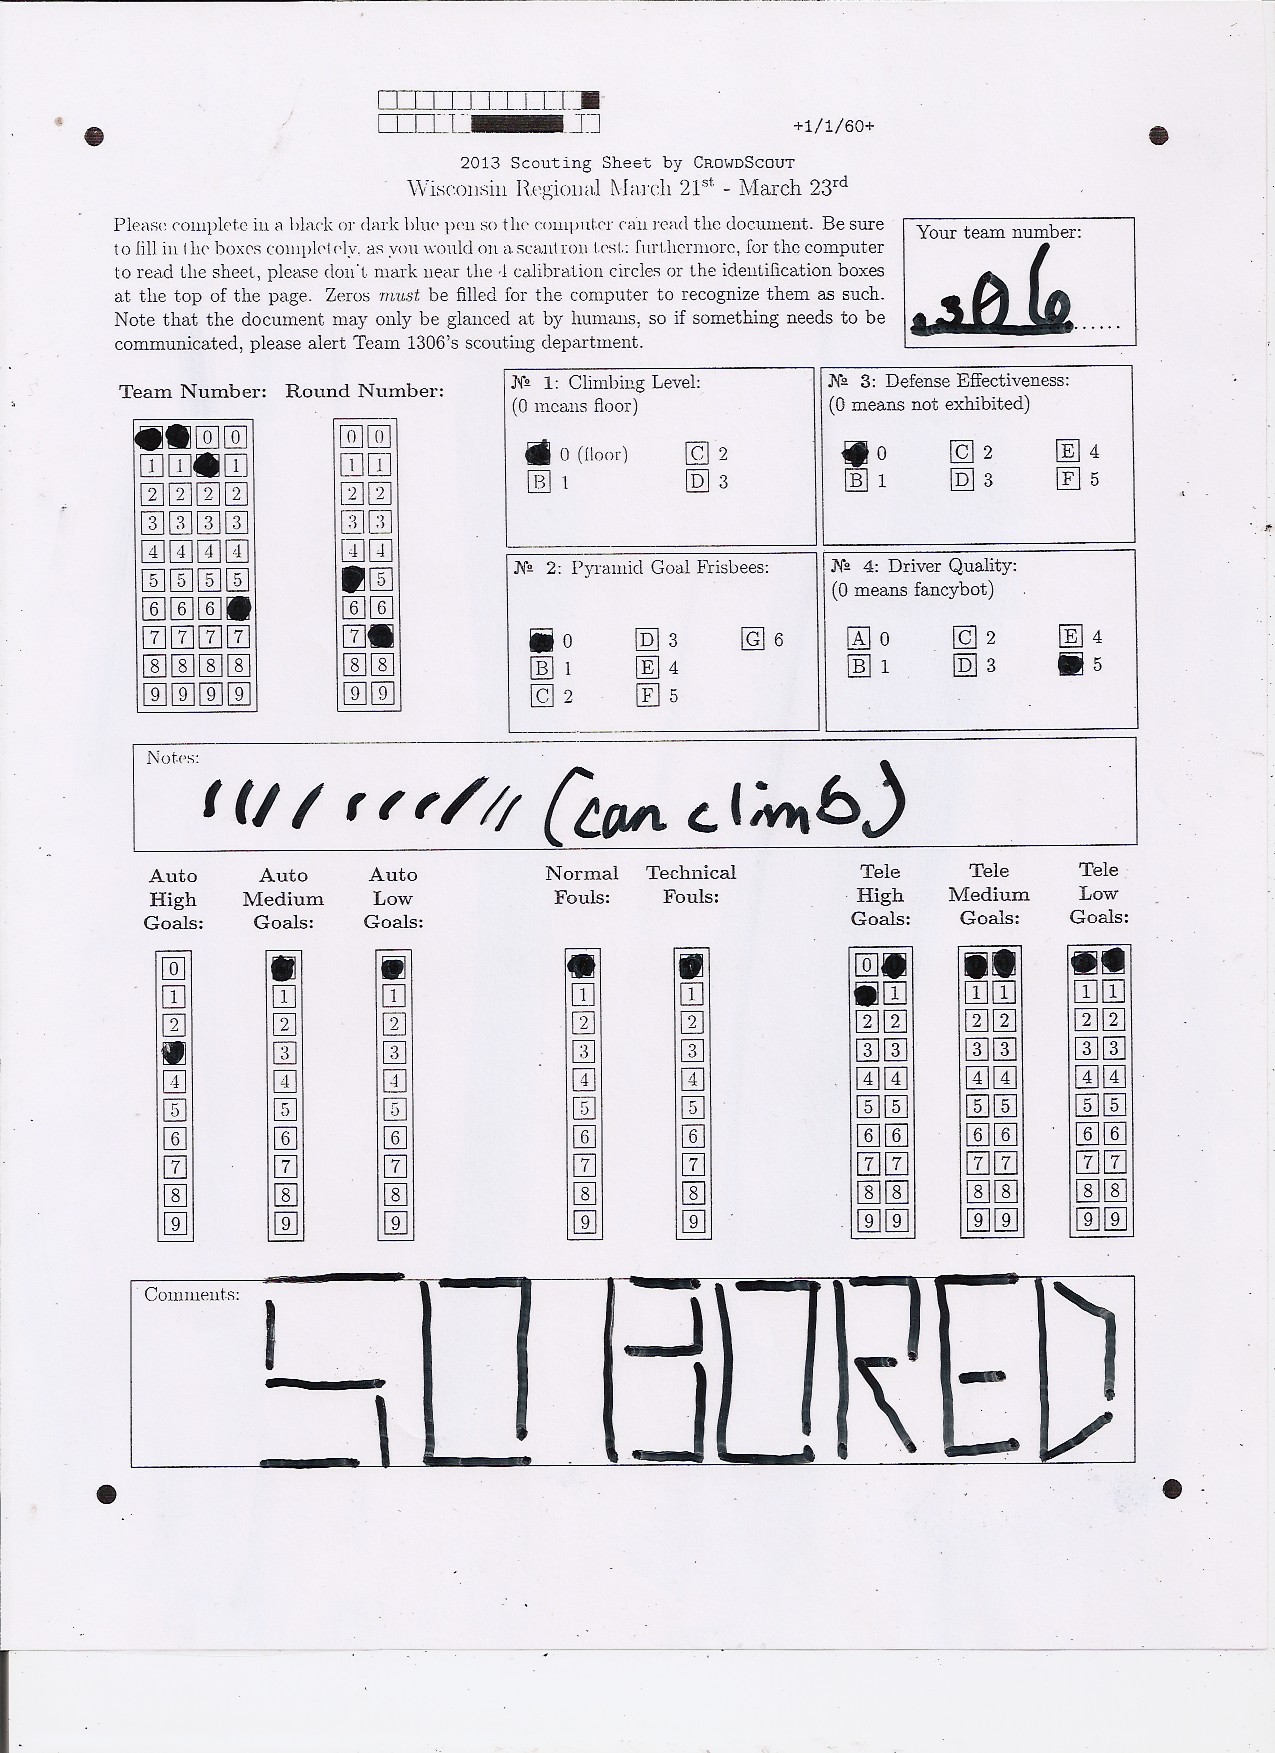 +1/1/60+
2013 Scouting Sheet by CROWDSCOUT
Wisconsin Regional March 21st - March 23rd
Please complete in a black or dark blue pen so the computer can read the document. Be sure
to fill in the boxes completely, as you would on a scantron test; furthermore, for the computer
to read the sheet, please don't mark near the 4 calibration circles or the identification boxes
at the top of the page. Zeros must be filled for the computer to recognize them as such.
Note that the document may only be glanced at by humans, so if something needs to be
communicated, please alert Team 1306's scouting department.
Your team number:
1306
Team Number: Round Number:
0 0 0 0
1 1 1 1 1
2 2 2 2 2 2
3 3 3 3 3 3
4 4 4 4 4 4
5 5 5 5 5
6 6 6 6 6
7 7 7 7 7
8 8 8 8 8 8
9 9 9 9 9 9
№ 1: Climbing Level:
(0 means floor)
0 (floor) C 2
B 1 D 3
№ 3: Defense Effectiveness:
(0 means not exhibited)
0 C 2 E 4
B 1 D 3 F 5
№ 2: Pyramid Goal Frisbees:
0 D 3 G 6
B 1 E 4
C 2 F 5
№ 4: Driver Quality:
(0 means fancybot)
A 0 C 2 E 4
B 1 D 3 5
Notes:
(can climb)
Auto High Goals:
Auto Medium Goals:
Auto Low Goals:
Normal Fouls:
Technical Fouls:
Tele High Goals:
Tele Medium Goals:
Tele Low Goals:
0 0
1 1 1 1 1 1 1 1 1 1
2 2 2 2 2 2 2 2 2 2 2
3 3 3 3 3 3 3 3 3 3
4 4 4 4 4 4 4 4 4 4 4
5 5 5 5 5 5 5 5 5 5 5
6 6 6 6 6 6 6 6 6 6 6
7 7 7 7 7 7 7 7 7 7 7
8 8 8 8 8 8 8 8 8 8 8
9 9 9 9 9 9 9 9 9 9 9
Comments:
SO BORED